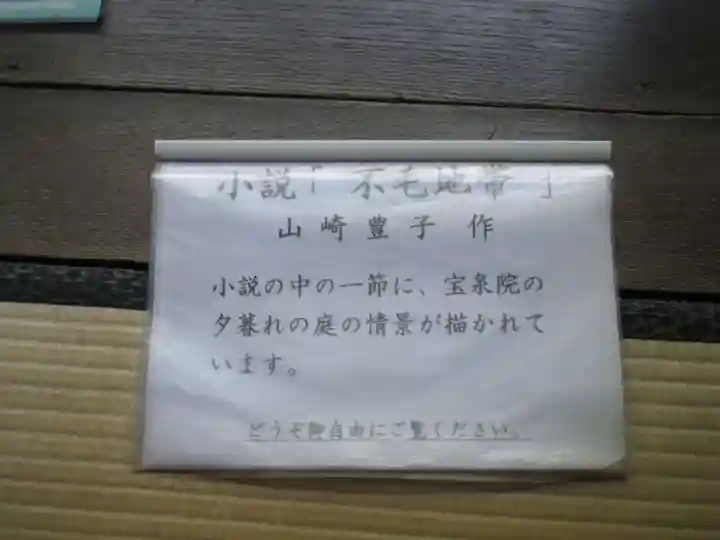 小説「 不毛地帯 」
山崎豊子 作
小説の中の一節に、宝泉院の
夕暮れの庭の情景が描かれて
います。
どうぞ御自由にご覧ください。